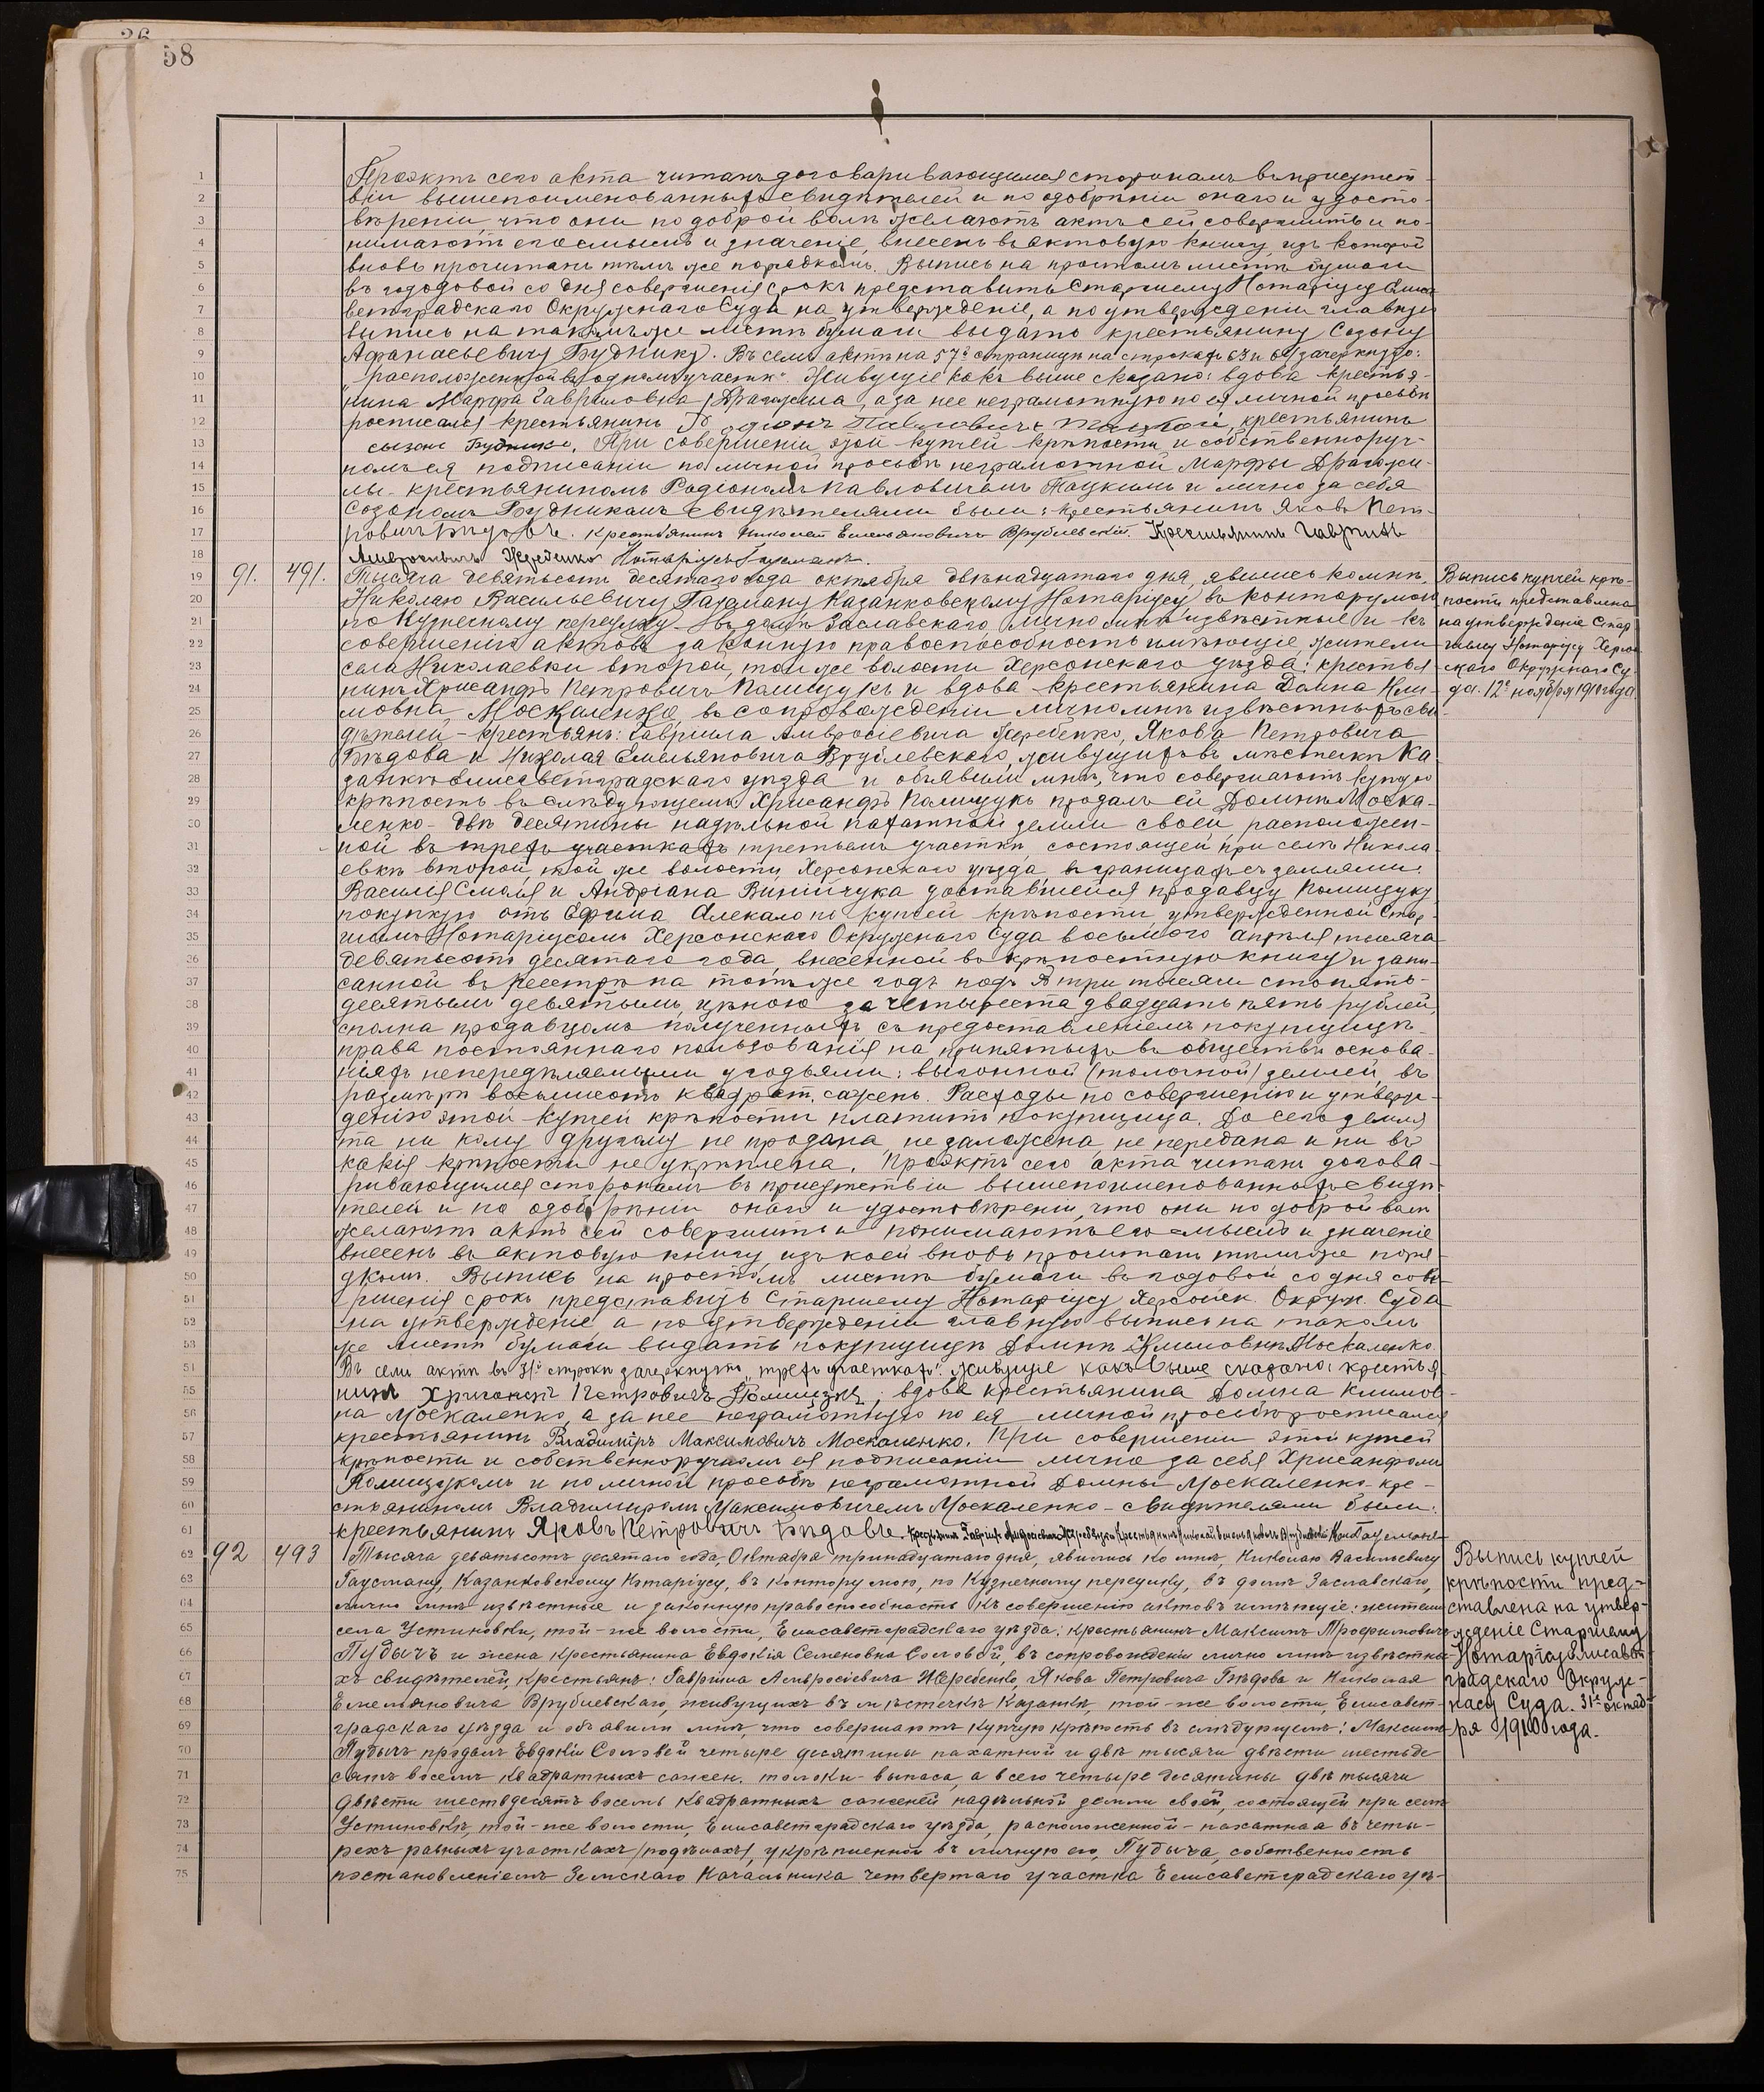 58
Проэктъ сего акта читанъ договаривающимся сторонамъ въ присутст-
віи вышепоименованныхъ свидѣтелей и по одобреніи онаго и удосто-
вѣреніи, что они по доброй волѣ желаютъ актъ сей совершить и по-
нимаютъ его смыслъ и значеніе, внесенъ въ актовую книгу, изъ которой
вновь прочитанъ тѣмъ же порядкомъ. Выпись на простомъ листѣ бумаги
въ годовой со дня совершенія срокъ представить Старшему Нотаріусу Елиса
ветградскаго Окружнаго Суда на утвержденіе, а по утвержденіи главную
выпись на такомъ же листѣ бумаги выдать крестьянину Созону
Афанасьевичу Буднику. Въ семъ актѣ на 57й страницѣ на строкахъ 63 и 64 зачеркнуто:
"расположенной въ одномъ участкѣ". Живущіе какъ выше сказано: вдова крестья-
нина Марфа Гавриловна Драгожила, а за нее неграмотную по ея личной просьбѣ
росписался крестьянинъ Родіонъ Павловичъ Пацкой, крестьянинъ
сызонъ Будникъ. При совершеніи этой купчей крѣпости и собственноруч-
номъ ея подписаніи по личной просьбѣ неграмотной Марфы Драгожи-
лы - крестьяниномъ Родіономъ Павловичемъ Пацкимъ и лично за себя
Созономъ Будникомъ свидѣтелями были: крестьянинъ Яковъ Пет-
ровичъ Бѣдовъ. крестьянинъ Николай Емельяновичъ Врублевскій. Крестьянинъ Гаврилъ
Амвросіевичъ Жеребенко Нотаріусъ Гаусманъ.
91. 491. Тысяча девятьсотъ десятаго года октября двѣнадцатаго дня, явились ко мнѣ,
Николаю Васильевичу Гаусману Казанковскому Нотаріусу въ контору мою
по Кузнечному переулку въ домѣ Заславскаго лично мнѣ извѣстные и къ
совершенію актовъ законную правоспособность имѣющіе жители
села Николаевки второй, той же волости Херсонскаго уѣзда: крестья
нинъ Хрисанфъ Петровичъ Полищукъ и вдова крестьянина Домна Кли-
мовна Москаленко, въ сопровожденіи лично мнѣ извѣстныхъ сви-
дѣтелей - крестьянъ: Гавріила Амвросіевича Жеребенко, Якова Петровича
Бѣдова и Николая Емельяновича Врублевскаго, живущихъ въ мѣстечкѣ Ка
занкѣ Елисаветградскаго уѣзда и объявили мнѣ, что совершаютъ купчую
крѣпость въ слѣдующемъ: Хрисанфъ Полищукъ продалъ ей Домнѣ Моска-
ленко - двѣ десятины надѣльной пахатной земли своей, расположен-
ной въ трехъ участкахъ третьемъ участкѣ, состоящей при селѣ Никола
евкѣ второй, той же волости, Херсонскаго уѣзда, въ границахъ съ землями:
Василія Смоля и Андріана Винійчука доставшейся продавцу Полищуку
покупкою отъ Ефима Олекало по купчей крѣпости утвержденной Стар-
шимъ Нотаріусомъ Херсонскаго Окружнаго Суда восьмого апрѣля тысяча
девятьсотъ десятаго года, внесенной въ крѣпостную книгу и запи-
санной въ реестрѣ на тотъ же годъ подъ № три тысячи сто пять-
десятымъ девятымъ, цѣною за четыреста двадцать пять рублей,
сполна продавцомъ полученныхъ съ предоставленіемъ покупщицѣ
права постояннаго пользованія на принятыхъ въ обществѣ основа-
ніяхъ непередѣляемыми угодьями: выгонной (толочной) землей, въ
размѣрѣ восьмисотъ квадрат. сажень. Расходы по совершенію и утверж-
денію этой купчей крѣпости платитъ покупщица. До сего земля
та ни кому другому не продана, не заложена, не передана и ни въ
какія крѣпости не укрѣплена. Проэктъ сего акта читанъ догова-
ривающимся сторонамъ въ присутствіи вышепоименованныхъ свидѣ-
телей и по одобреніи онаго и удостовѣреніи, что они по доброй волѣ
желаютъ актъ сей совершить и понимаютъ его смыслъ и значеніе
внесенъ въ актовую книгу, изъ коей вновь прочитанъ тѣмъ же поря-
дкомъ. Выпись на простомъ листѣ бумаги въ годовой со дня сове-
ршенія срокъ представить Старшему Нотаріусу Херсонск. Окруж. Суда
на утвержденіе, а по утвержденіи главную выпись на такомъ
же листѣ бумаги выдать покупщицѣ Домнѣ Климовнѣ Москаленко.
Въ семъ актѣ въ 31й строкѣ зачеркнуто "трехъ участкахъ". Живущіе какъ выше сказано: крестья
нинъ Хрисанфъ Петровичъ Полищукъ, вдова крестьянина Домна Климов-
на Москаленко, а за нее неграмотную по ея личной просьбѣ росписался
крестьянинъ Владиміръ Максимовичъ Москаленко. При совершеніи этой купчей
крѣпости и собственноручномъ ея подписаніи лично за себя Хрисанфомъ
Полищукомъ и по личной просьбѣ неграмотной Домны Москаленко - кре-
стьяниномъ Владиміромъ Максимовичемъ Москаленко - свидѣтелями были:
крестьянинъ Яковъ Петровичъ Бѣдовъ. Крестьянинъ Гаврилъ Амвросіевичъ Жеребенко Крестьянинъ Николай Емельяновичъ Врублевскій Нот. Гаусманъ
92 493 Тысяча девятьсотъ десятаго года, Октября тринадцатаго дня, явились ко мнѣ, Николаю Васильевичу
Гаусману, Казанковскому Нотаріусу, въ контору мою, по Кузнечному переулку, въ домѣ Заславскаго,
лично мнѣ извѣстные и законную правоспособность къ совершенію актовъ имѣющіе: жители
села Устиновки, той-же волости, Елисаветградскаго уѣзда: крестьянинъ Максимъ Трофимовичъ
Пудычъ и жена крестьянина Евдокія Семеновна Соловей, въ сопровожденіи лично мнѣ извѣстны-
хъ свидѣтелей, крестьянъ: Гавріила Амвросіевича Жеребенко, Якова Петровича Бѣдова и Николая
Емельяновича Врублевскаго, живущихъ въ мѣстечкѣ Казанкѣ, той-же волости, Елисавет-
градскаго уѣзда и объявили мнѣ, что совершаютъ купчую крѣпость въ слѣдующемъ: Максимъ
Пудычъ продалъ Евдокіи Соловей четыре десятины пахатной и двѣ тысячи двѣсти шестьде
сятъ восемь квадратныхъ сажен. толоки-выпаса, а всего четыре десятины двѣ тысячи
двѣсти шестьдесятъ восемь квадратныхъ саженей надѣльной земли своей, состоящей при селѣ
Устиновкѣ, той-же волости, Елисаветградскаго уѣзда, расположенной - пахатная въ четы-
рехъ разныхъ участкахъ /подѣлахъ/, укрѣпленной въ личную его, Пудыча, собственность
постановленіемъ Земскаго Начальника четвертаго участка Елисаветградскаго уѣ-
Выпись купчей крѣ-
пости представлена
на утвержденіе Стар
шему Нотаріусу Херсон
скаго Окружнаго Су-
да. 12го ноября 1910 года.
Выпись купчей
крѣпости пред-
ставлена на утвер-
жденіе Старшему
Нотаріусу Елисавет
градскаго Окруж-
наго Суда. 31го октяб-
ря 1910 года.